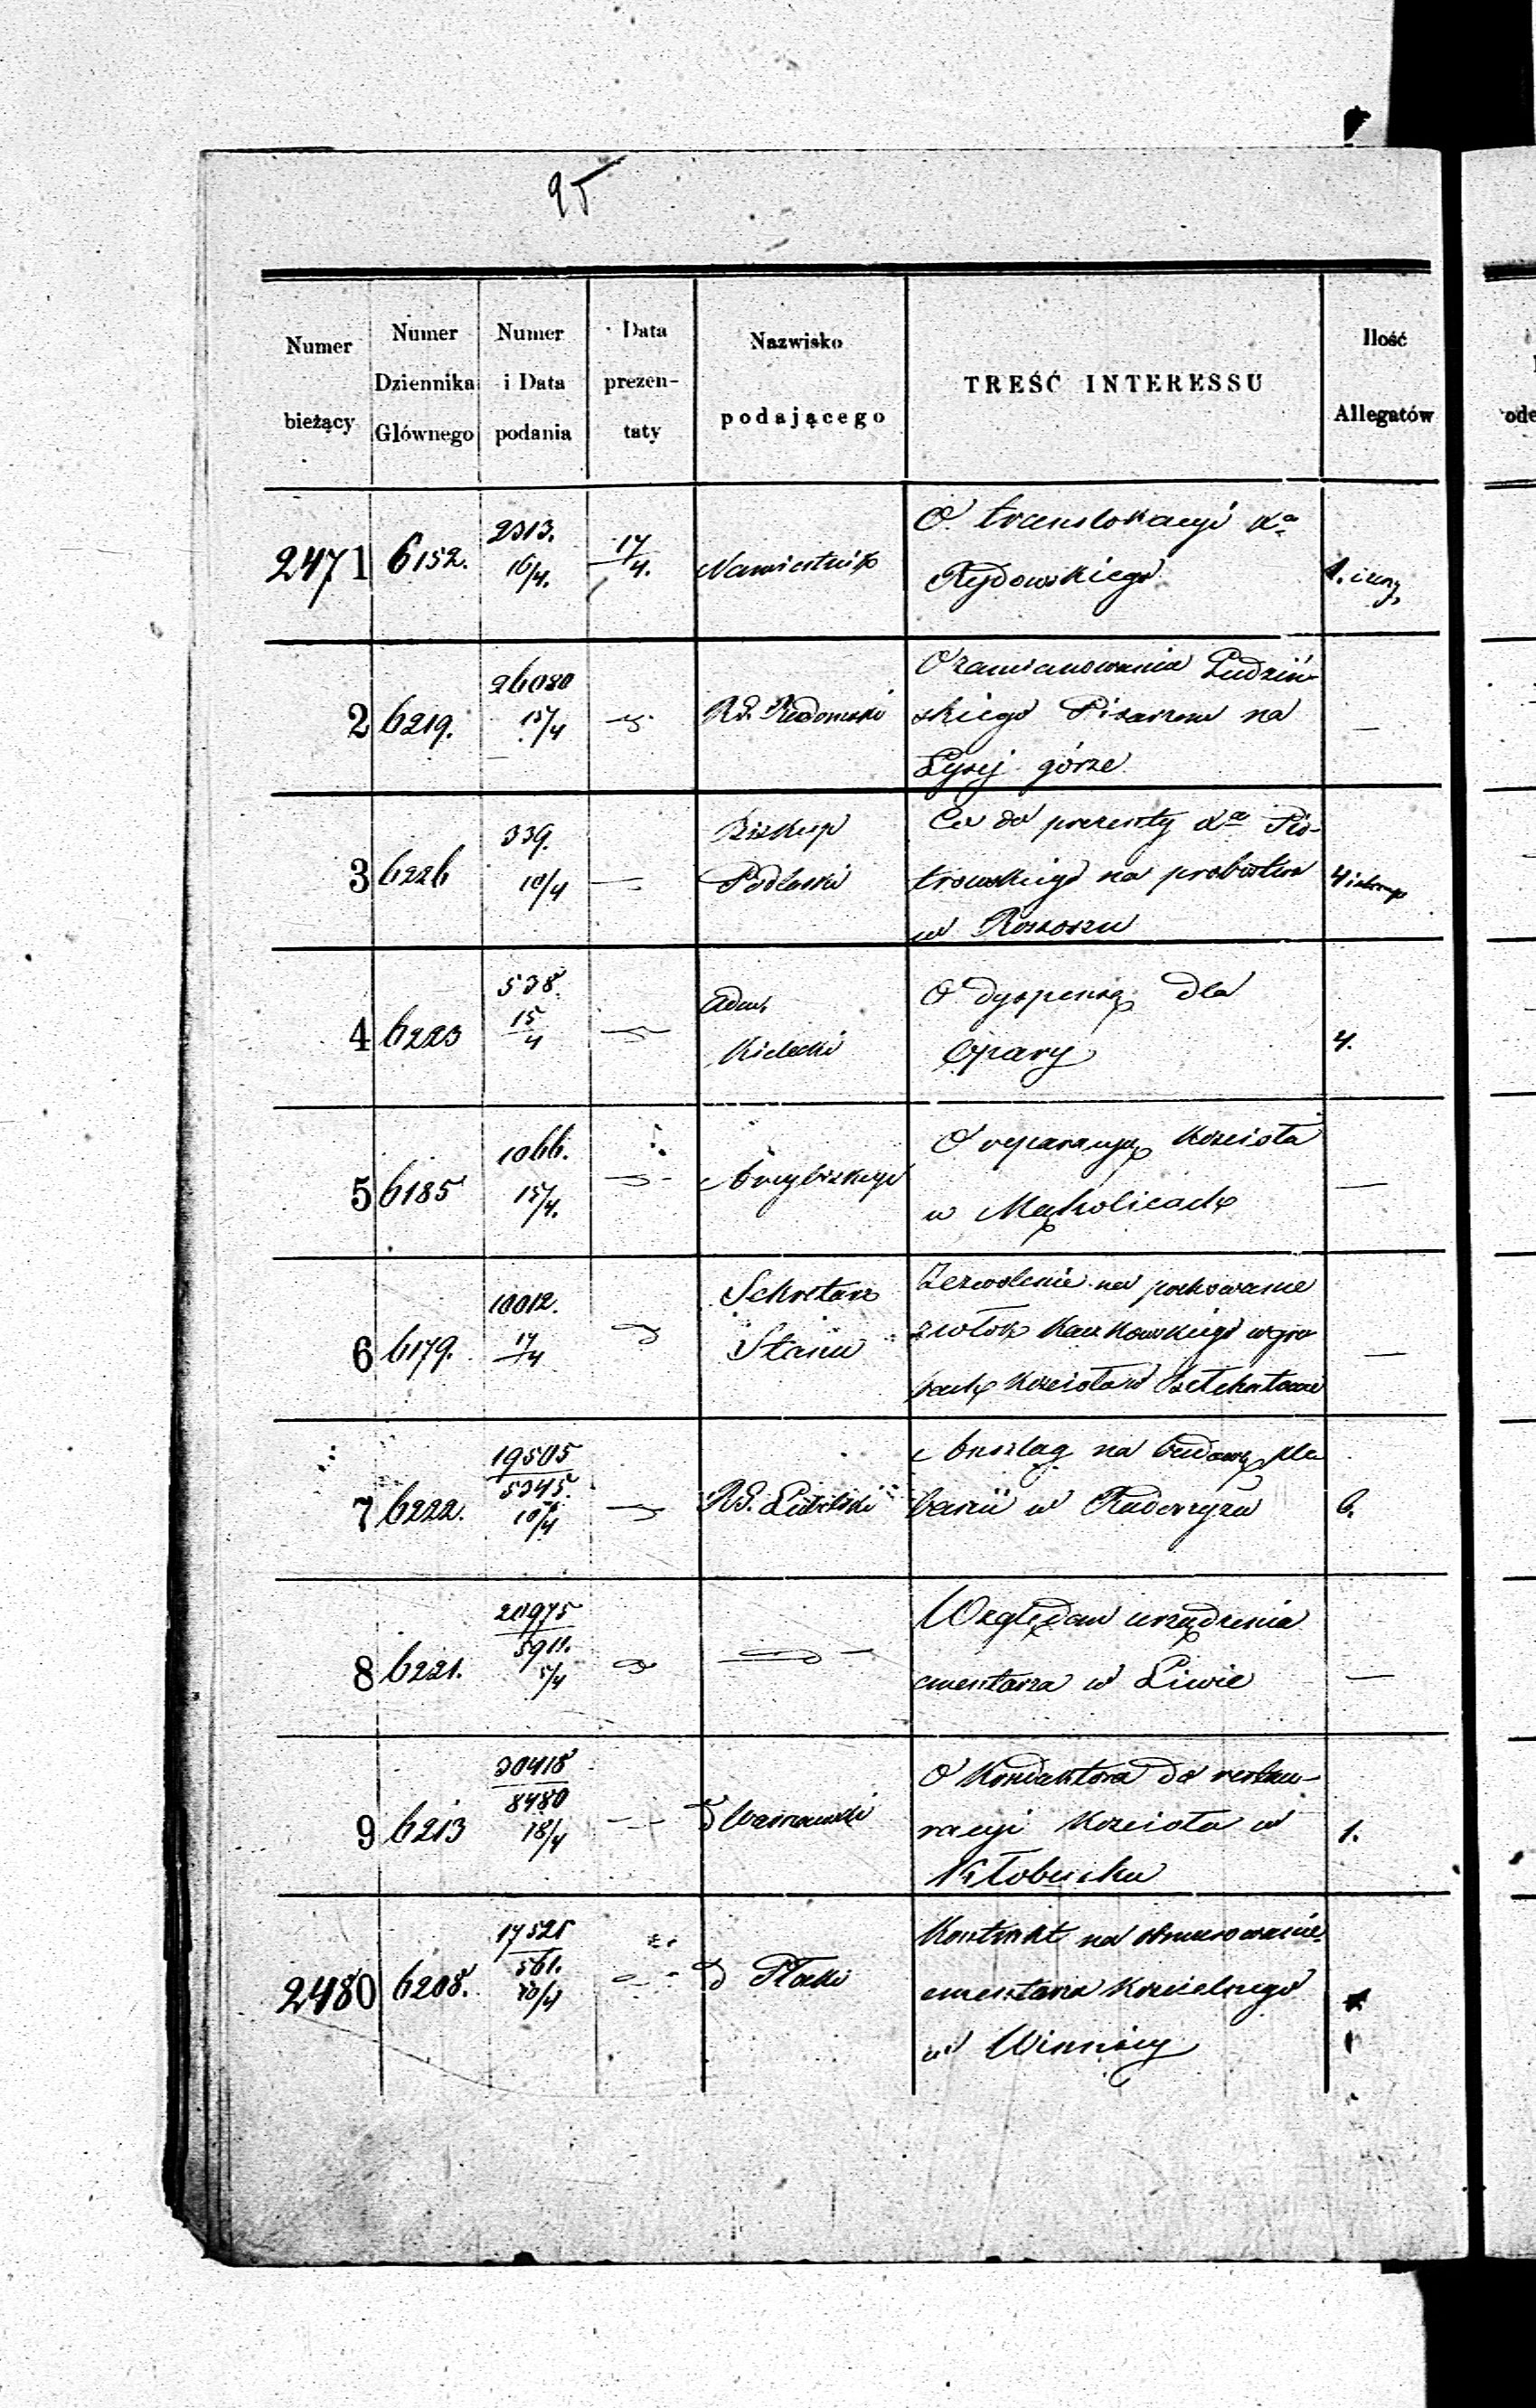 95
Numer bieżący
Numer Dziennika Głównego
Numer i Data podania
Data prezentaty
Nazwisko podającego
TREŚĆ INTERESSU
Ilość Allegatów
2471 6152. 2313. 16/4. 17/4. Namiestnik
O translokacyi Xa
Rydowskiego
2 6219. 26080 15/4 RG. Radomski
O zamianowanie Ludziń-
skiego Pisarzem na
Łysej górze
3 6226 339. 10/4 — Biskup Podlaski
Co do prezenty Xa Pio-
trowskiego na probostwo
w Rossoszu
4 6223 538. 15/4 Adm. Kielecki 4.
O dyspensę dla
Opary
5 6185 1066. 15/4. Arcybiskup —
O reparacyę Kościoła
w Mąkolicach
6 6179. 10012. 17/4 Sekretarz Stanu —
Zezwolenie na pochowanie
zwłok Kaczkowskiego w gro
bach Kościoła w
7 6222. 19505 5345. 10/4 RG. Lubelski 6.
Anszlag na budowę ple
banii w Radoryżu
8 6221. 20975 5911. 5/4 —
Względem urządzenia
cmentarza w Liwie
9 6213 30418 8480 18/4 — d Warszawski 1.
O Konduktora do restau-
racyi Kościoła w
Kłobucku
2480 6208. 17521 561. 10/4 d Płocki
Kontrakt na obmurowanie
cmentarza Kościelnego
w Winnicy